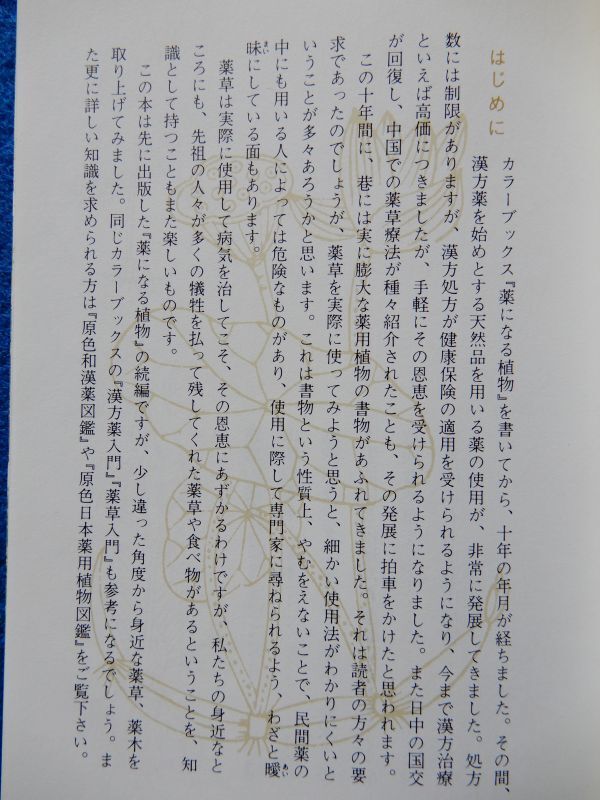 はじめに
カラーブックス『薬になる植物』を書いてから、十年の年月が経ちました。その間、
漢方薬を始めとする天然品を用いる薬の使用が、非常に発展してきました。処方
数には制限がありますが、漢方処方が健康保険の適用を受けられるようになり、今まで漢方治療
といえば高価につきましたが、手軽にその恩恵を受けられるようになりました。また日中の国交
が回復し、中国での薬草療法が種々紹介されたことも、その発展に拍車をかけたと思われます。
この十年間に、巷には実に膨大な薬用植物の書物があふれてきました。それは読者の方々の要
求であったのでしょうが、薬草を実際に使ってみようと思うと、細かい使用法がわかりにくいと
いうことが多々あろうかと思います。これは書物という性質上、やむをえないことで、民間薬の
中にも用いる人によっては危険なものがあり、使用に際して専門家に尋ねられるよう、わざと曖あい
昧まいにしている面もあります。
薬草は実際に使用して病気を治してこそ、その恩恵にあずかるわけですが、私たちの身近なと
ころにも、先祖の人々が多くの犠牲を払って残してくれた薬草や食べ物があるということを、知
識として持つこともまた楽しいものです。
この本は先に出版した『薬になる植物』の続編ですが、少し違った角度から身近な薬草、薬木を
取り上げてみました。同じカラーブックスの『漢方薬入門』『薬草入門』も参考になるでしょう。ま
た更に詳しい知識を求められる方は『原色和漢薬図鑑』や『原色日本薬用植物図鑑』をご覧下さい。